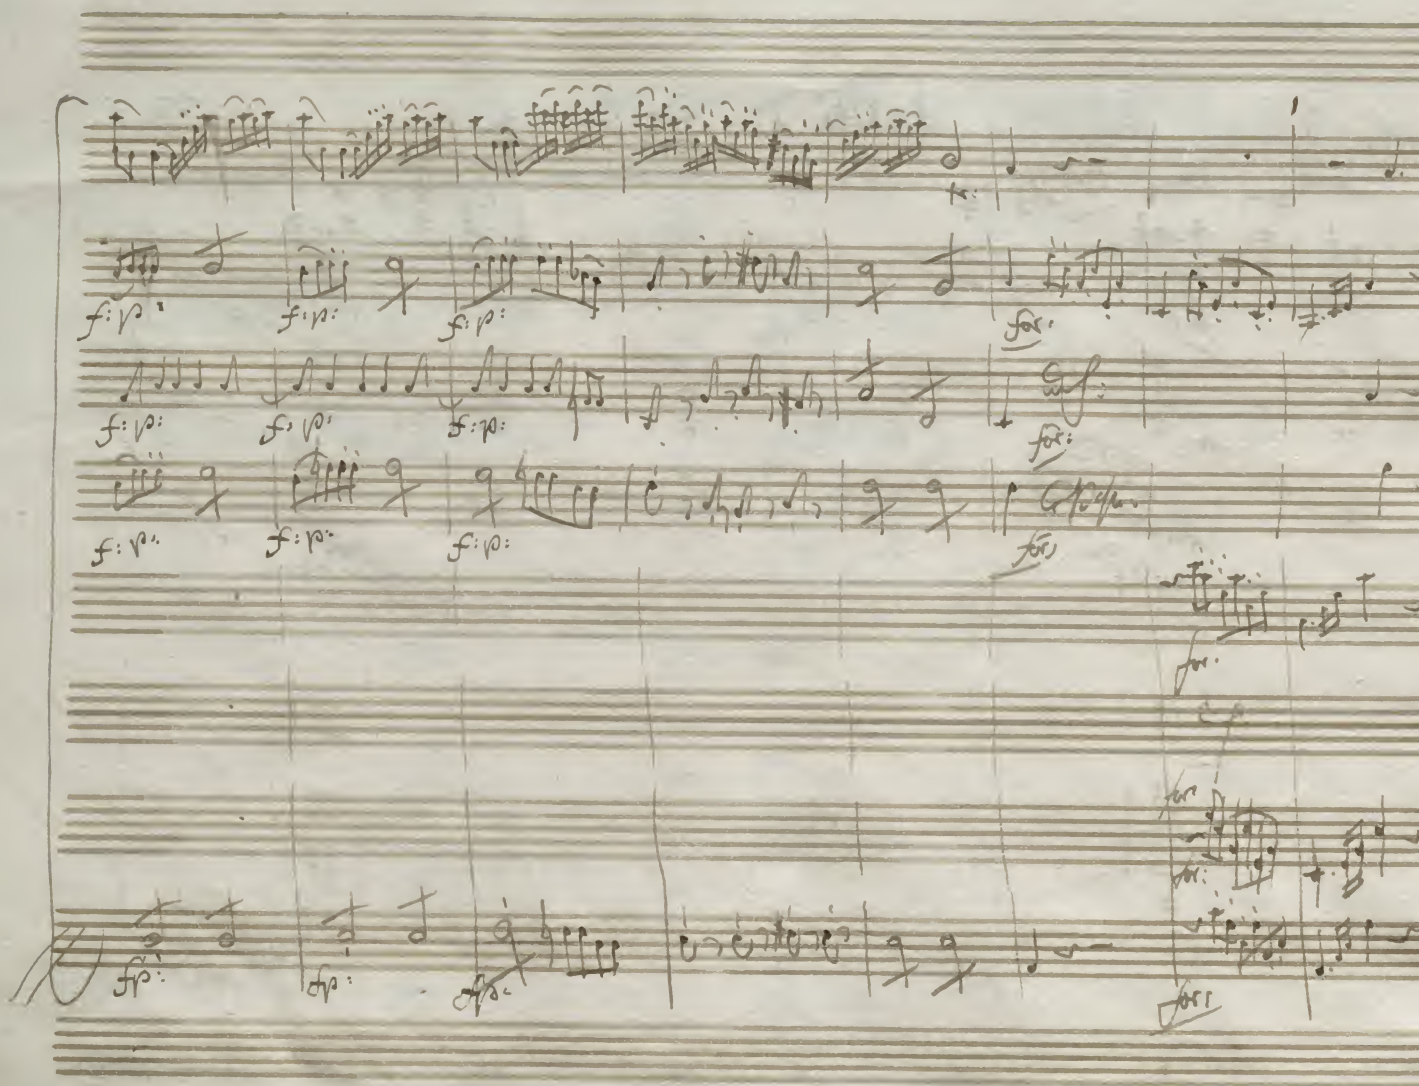 tr:
f: p:
f: p:
f: p:
for:
f: p:
f: p:
f: p:
for:
f: p:
f: p:
f: p:
for:
for:
for:
for:
fp:
fp:
fp:
for: